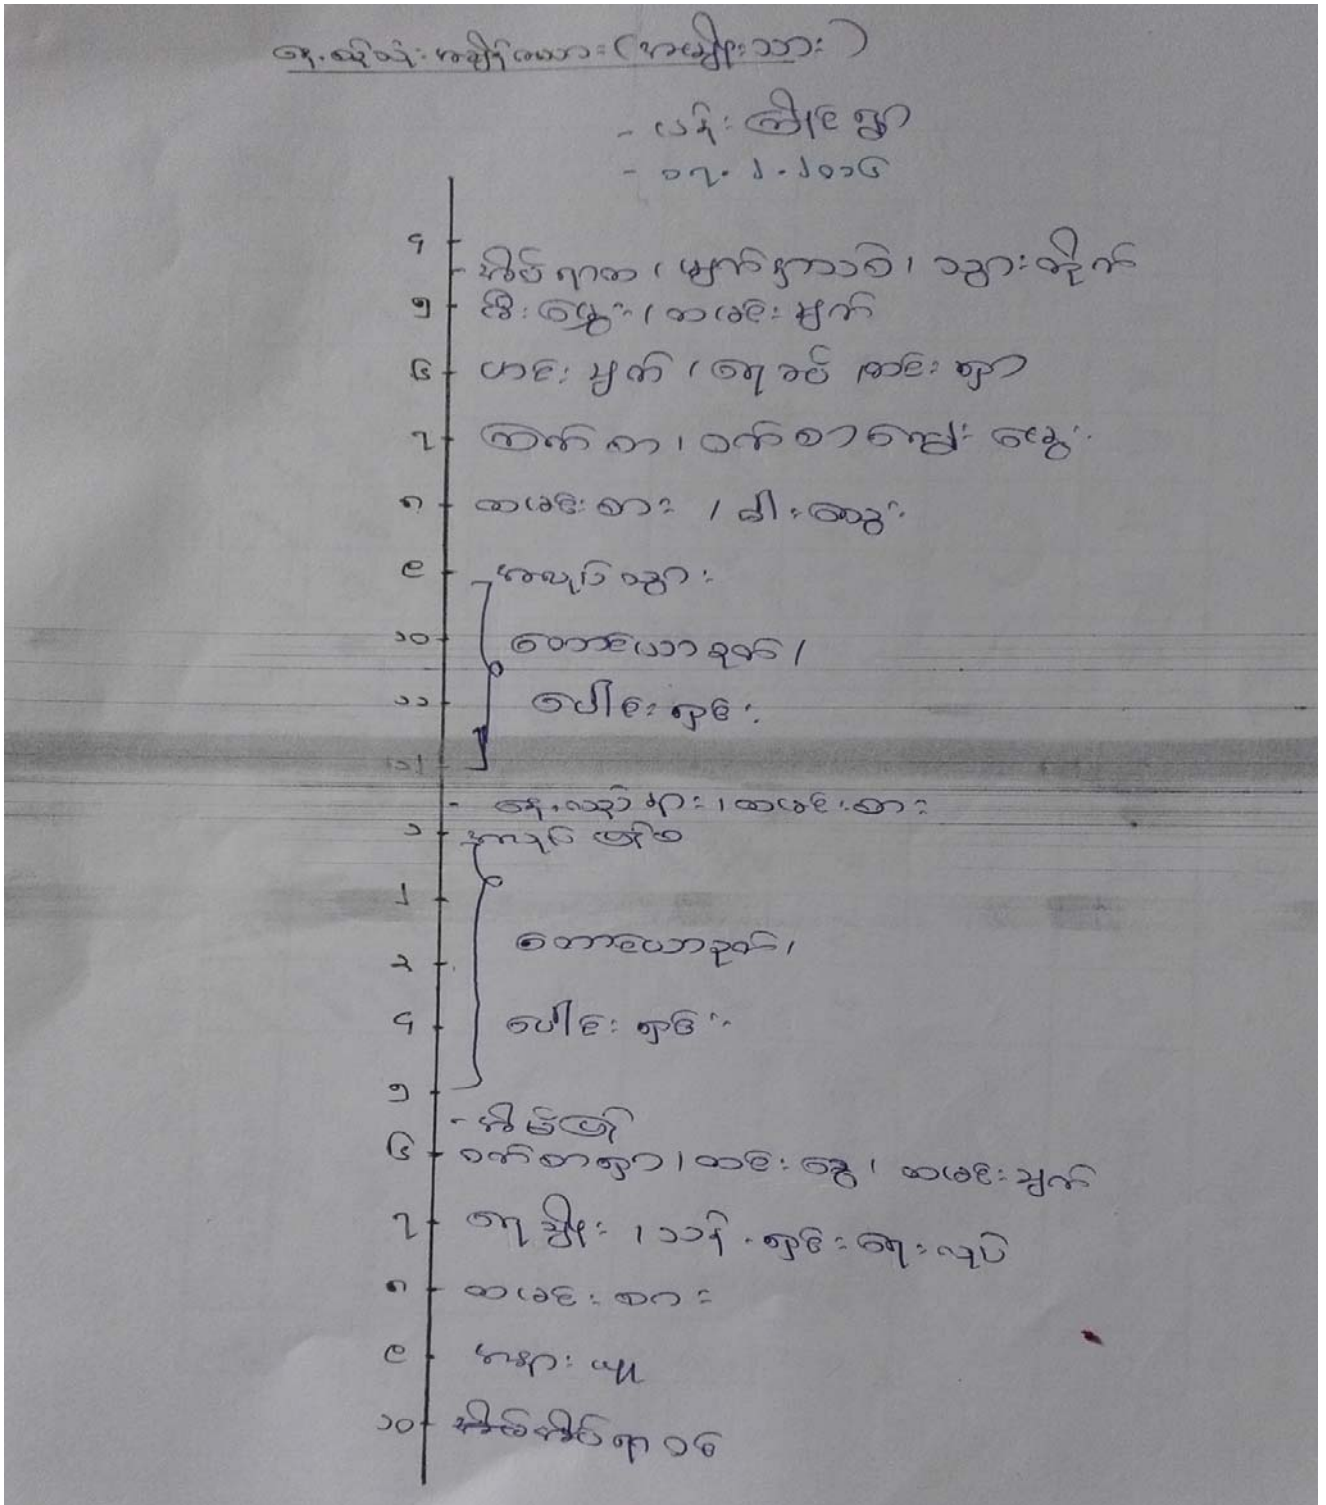 နေ့စဉ်သုံးအချိန်ဇယား (အမျိုးသား)
- ပန်းကြိုင်ရွာ
- ၁၇.၂.၂၀၁၆
၄
- အိပ်ရာထ၊ မျက်နှာသစ်၊ သွားတိုက်
၅ မီးမွှေး၊ ထမင်းချက်
၆ ဟင်းချက်၊ ရေခပ်၊ ထင်းရှာ
၇ ကြက်စာ၊ ဝက်စာကျွေး မွေး
၈ ထမင်းစား၊ ဓါးသွေး
၉ အလုပ်သွား
၁၀ တောင်ယာခုတ်၊
၁၁ ပေါင်းရှင်း
၁၂
- နေ့လည်နား၊ ထမင်းစား
၁ အလုပ်ပြန်ဝင်
၂
၃ တောင်ယာခုတ်၊
၄ ပေါင်းရှင်း
၅
- အိမ်ပြန်
၆ ဝက်စာရှာ၊ ထင်းခွေ၊ ထမင်းချက်
၇ ရေချိုး၊ သန့်ရှင်းရေးလုပ်
၈ ထမင်းစား
၉ အနားယူ
၁၀ အိပ်ရာဝင်